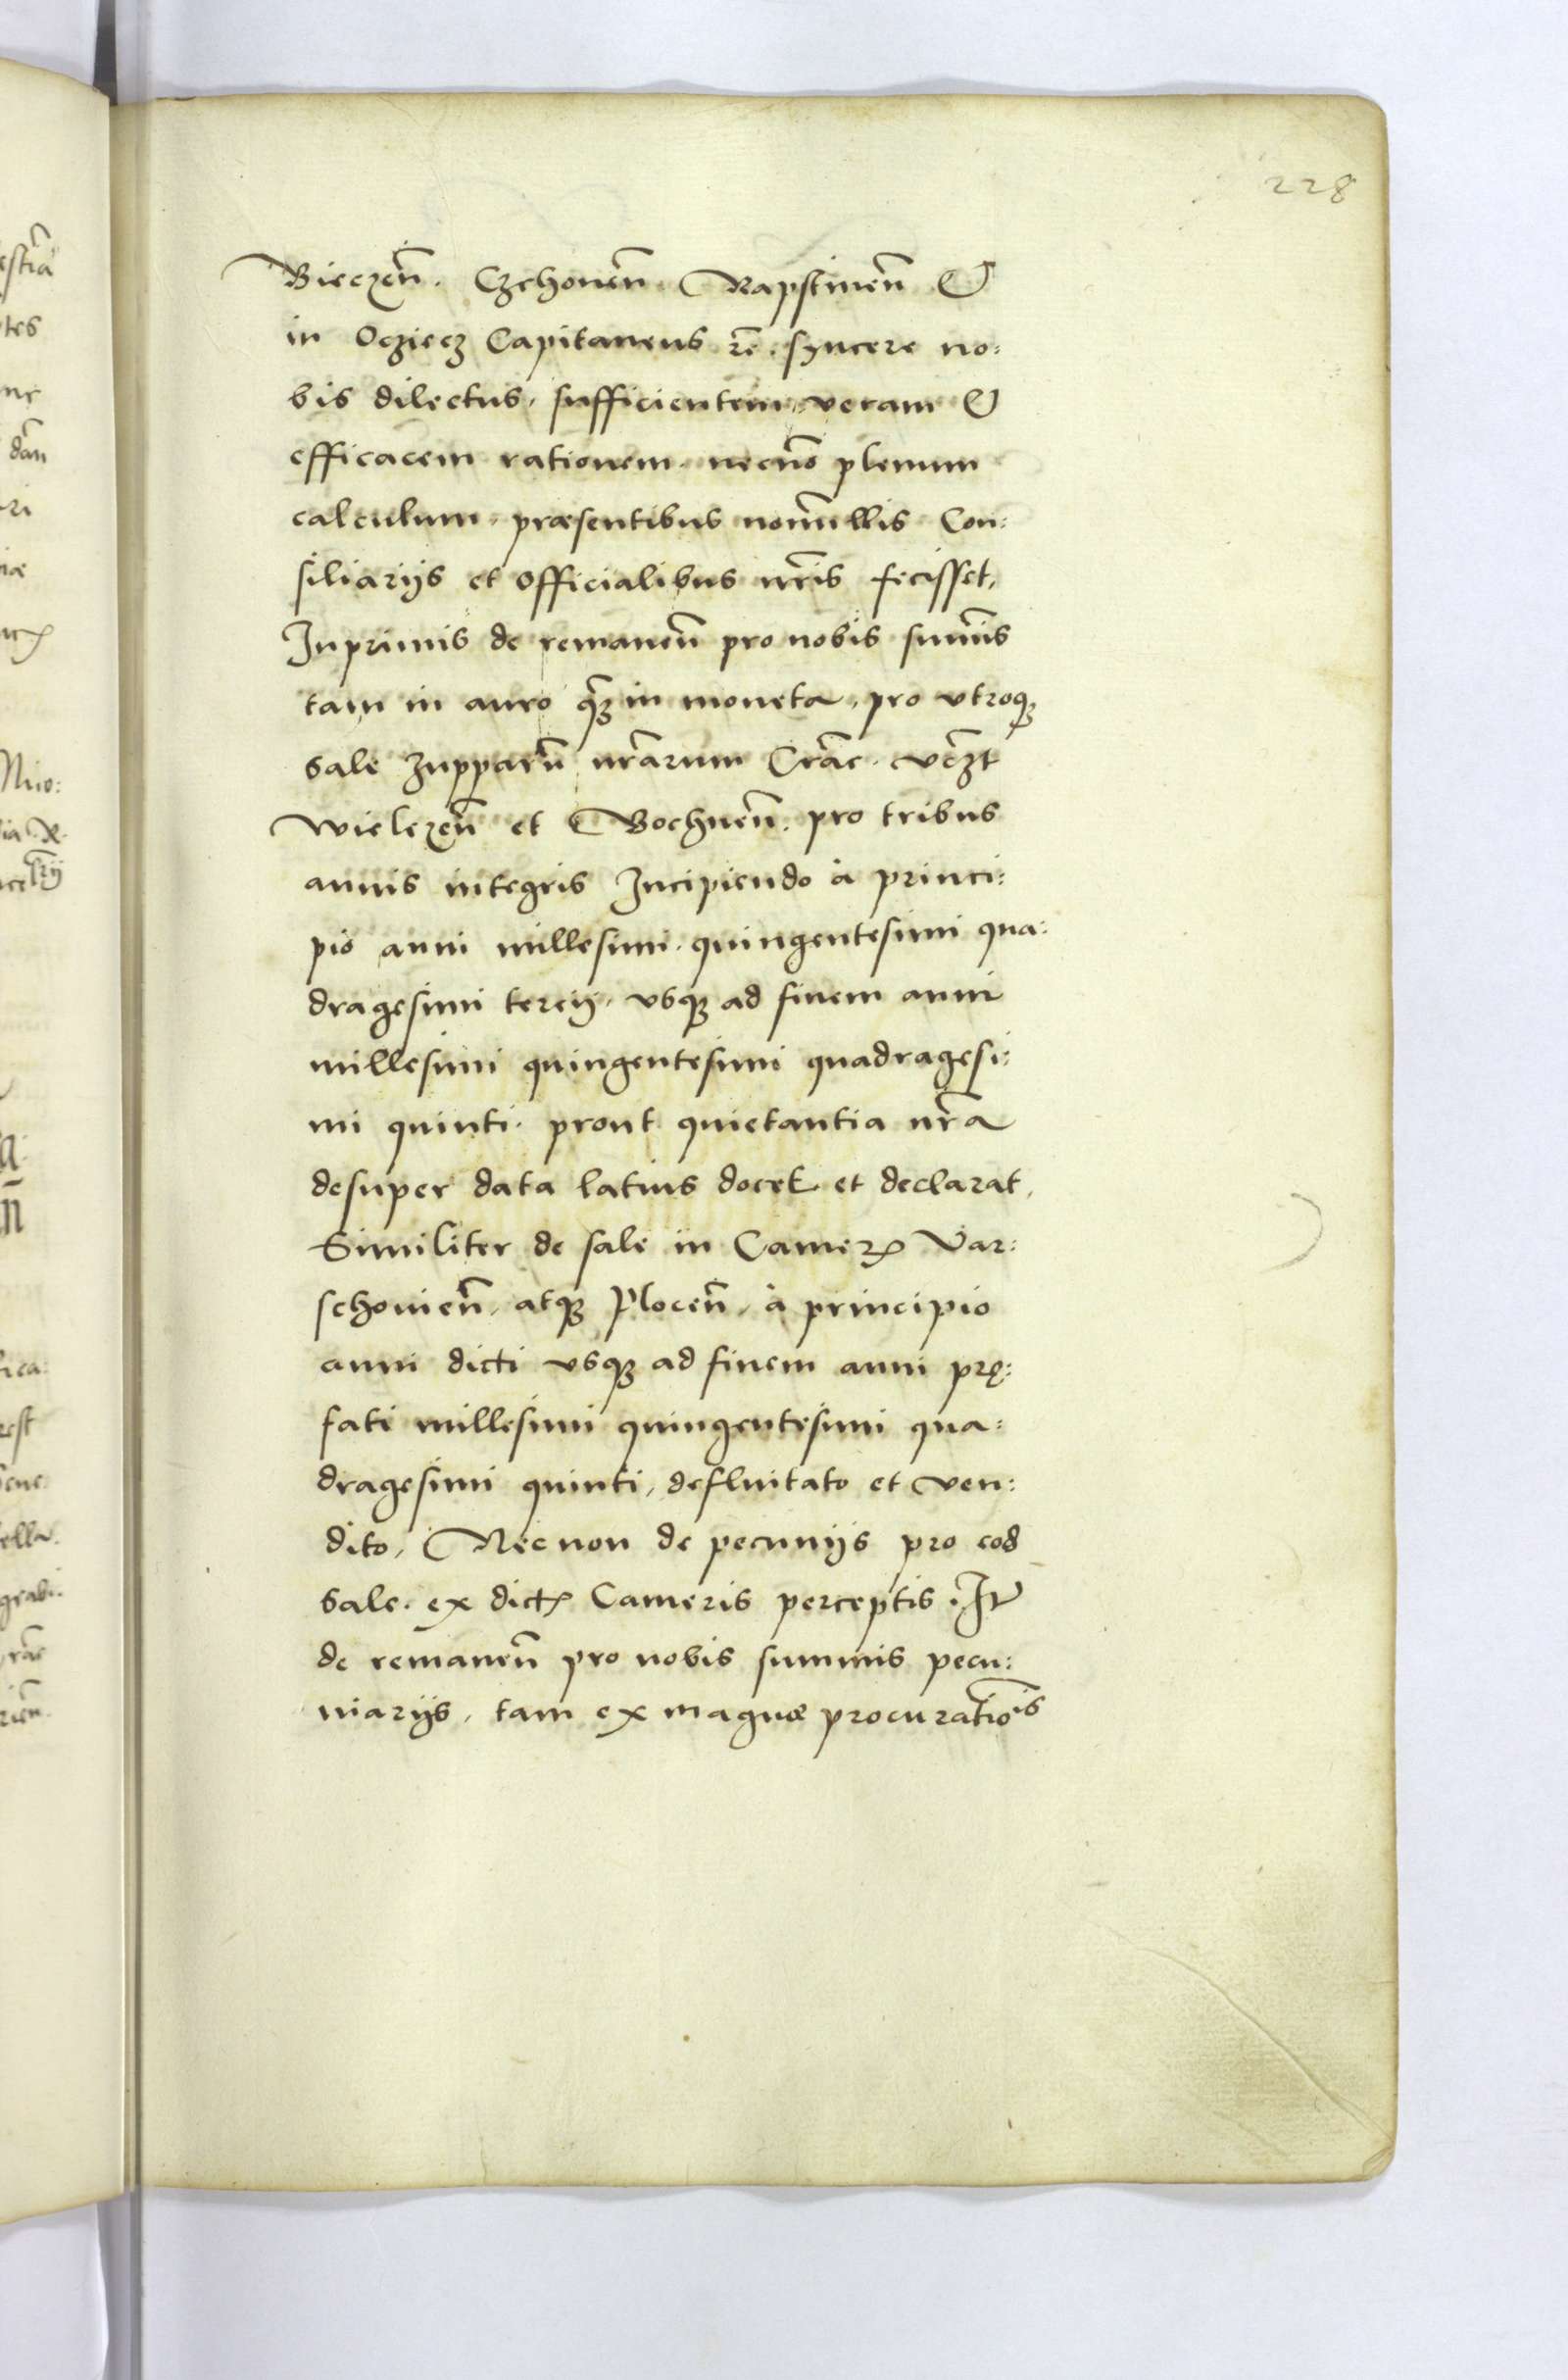 228
Bieczeñ. Czchoueñ. Rapstineñ &
in Ocziecz Capitaneus rē. syncere no:
bis dilectus, sufficientem, veram &
efficacem rationem. necnō plenum
calculum, præsentibus nonnullis Con:
siliarijs et officialibus nr̃is fecisset,
Inprimis de remaneñ pro nobis sum̃is
tam in auro q̃z in moneta, pro utroq3
sale Zupparũ nr̃arum Crac̃. vcz̃t
Wieliczeñ et Bochneñ. pro tribus
annis integris Incipiendo à princi:
pio anni millesimi. quingentesimi qua:
dragesimi tercij. usq3 ad finem anni
millesimi quingentesimi quadragesi:
mi quinti. prout quietantia nr̃a
desuper data latius docet et declarat.
Similiter de sale in Camer̃ Var:
schouieñ, atq3 Ploceñ, à principio
anni dicti usq3 ad finem anni prę:
fati millesimi quingentesimi qua:
dragesimi quinti, defluitato et ven:
dito, Necnon de pecunijs pro eod
sale. ex dict̃ Cameris perceptis. It̃
de remaneñ pro nobis summis pecu:
niarijs, tam ex magnæ procuratiõis